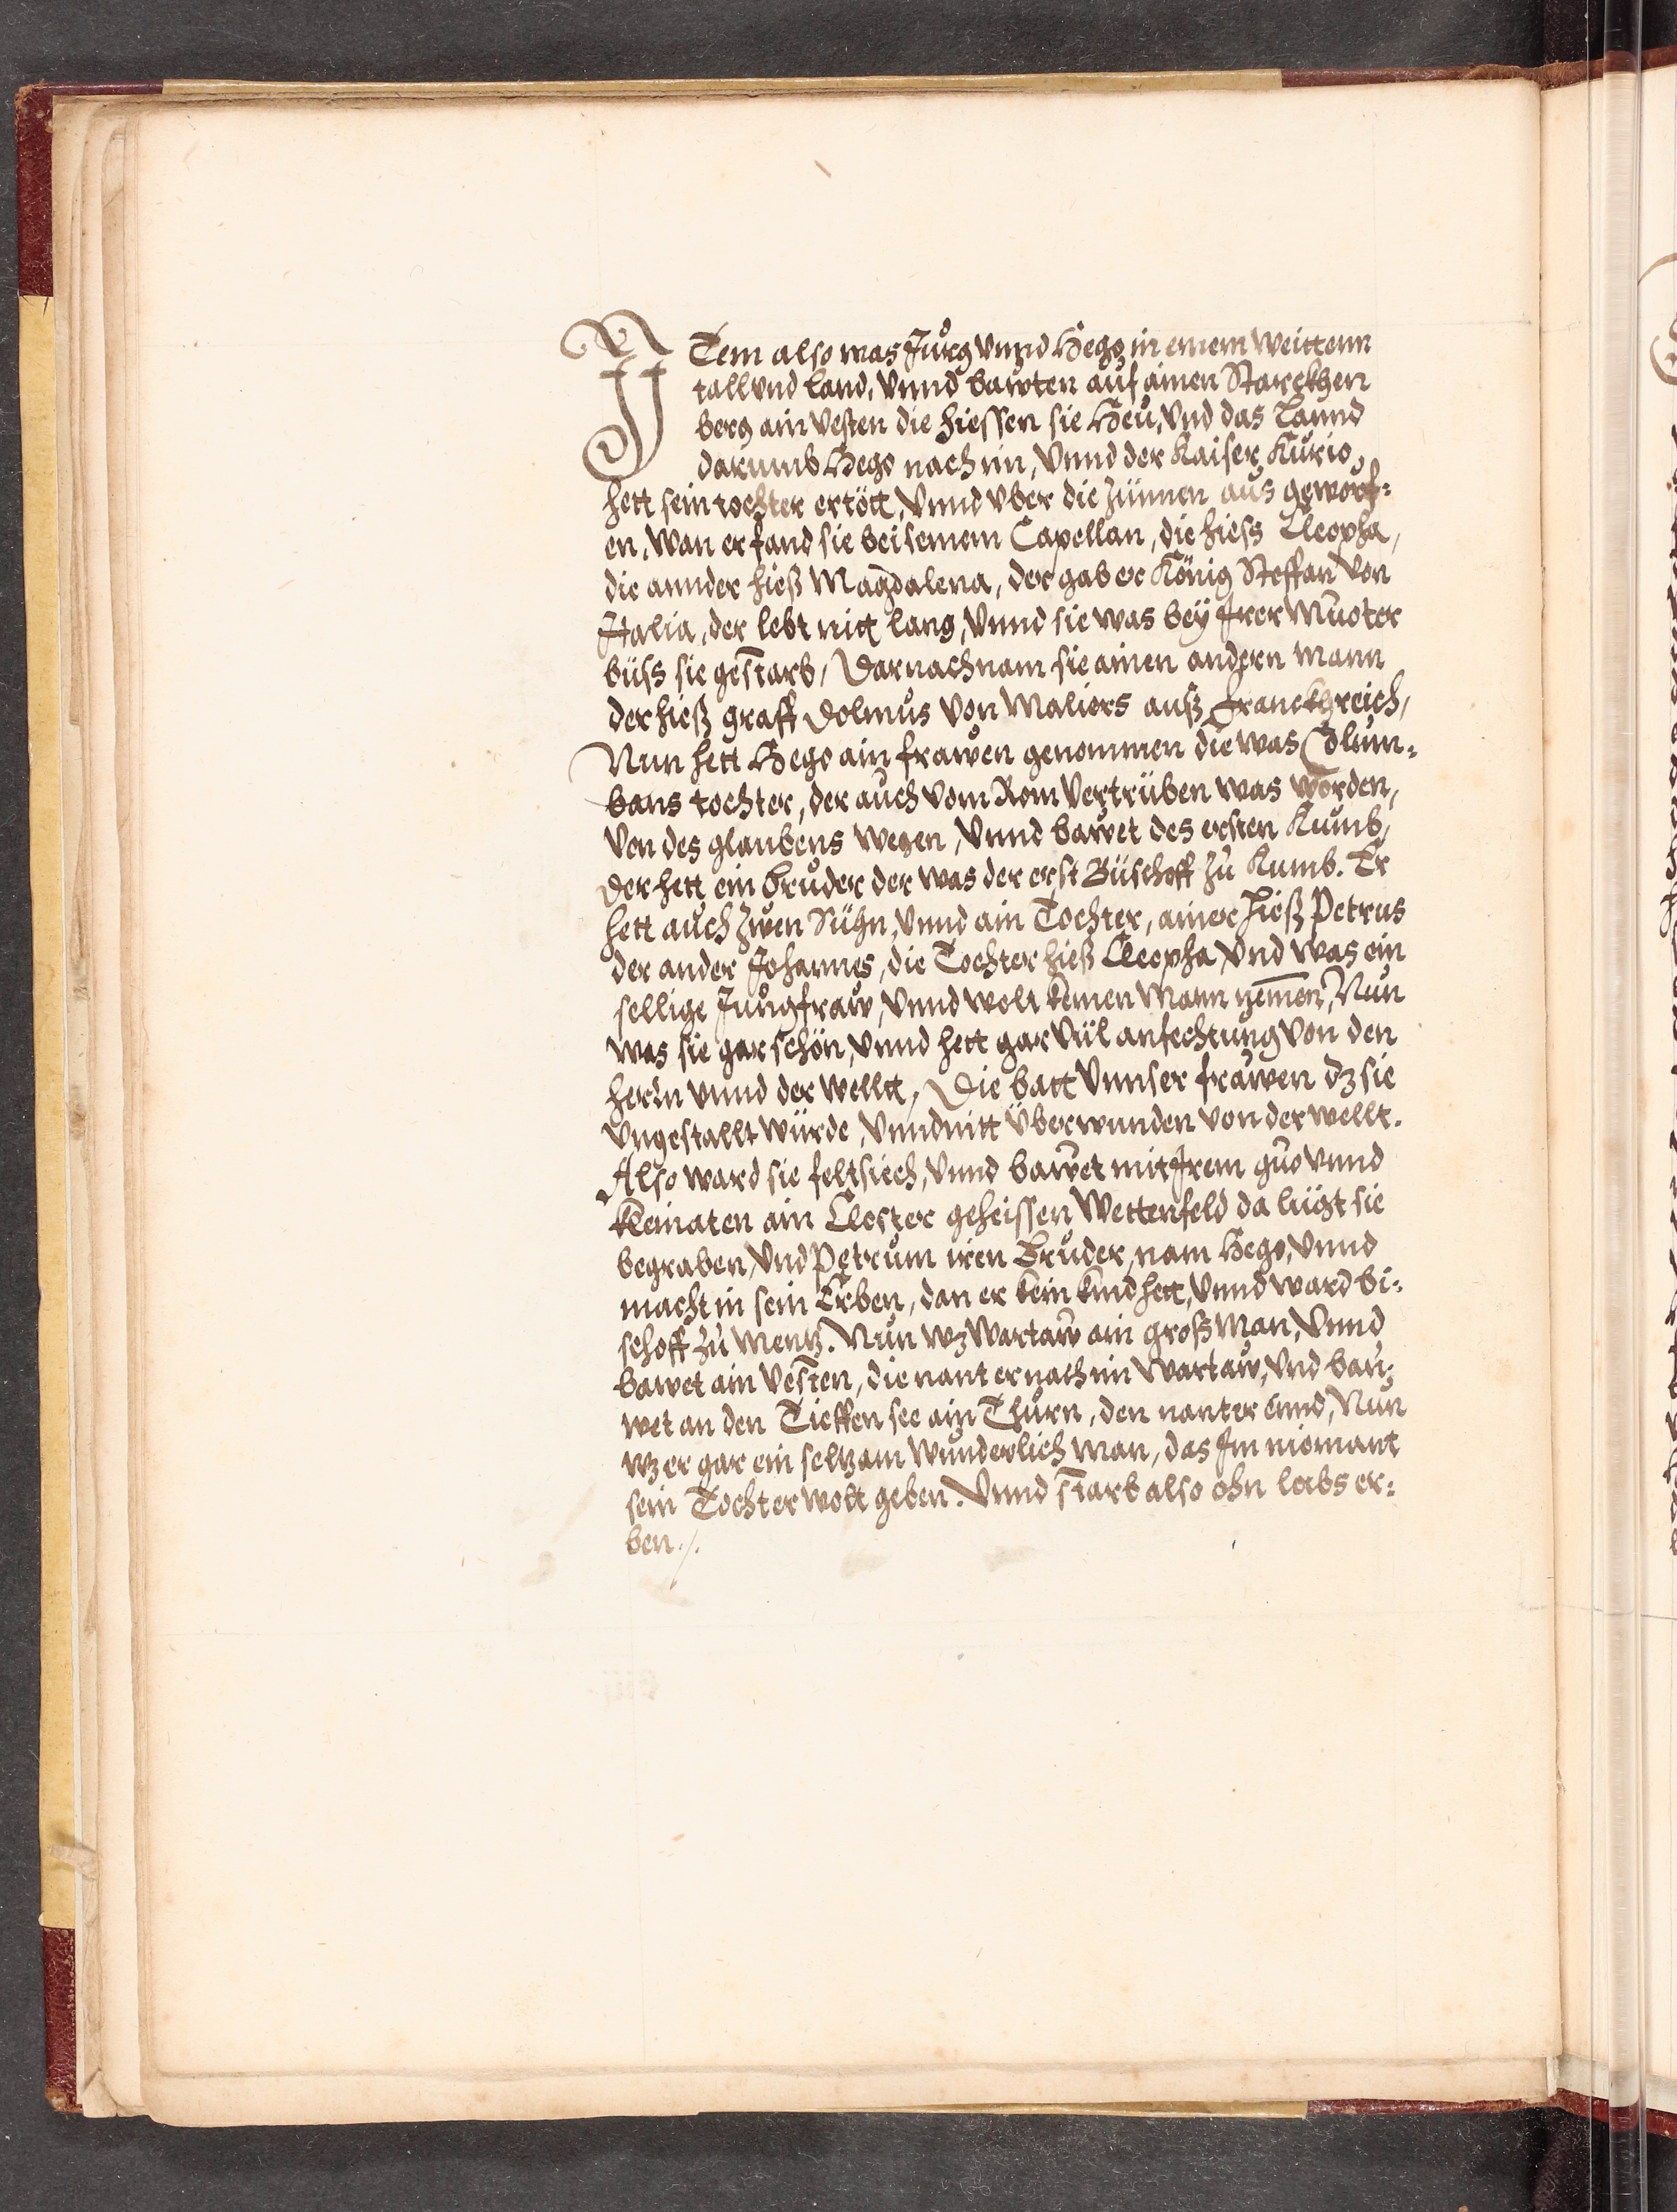 ITem also was Jurg vnnd Hego in einem weittenn
tall vnd land, vnnd bawten auf ainen Starckhen
berg ain vesten die hiessen sie Heu, vnd das Lannd
darumb Hego nach im, vnnd der Kaiser Kurio,
hett sein tochter ertött, vnnd vber die Zünnen aus geworf=
en, wan er fand sie bei seinem Capellan, die hiess Cleopha,
die annder hieß Magdalena, der gab er König Steffan von
Italia, der lebt nitt lang, vnnd sie was bey Jrer Muoter
büss sie gestarb, Darnach nam sie ainen andern mann
der hieß graff Dolmus von Maliers auß Franckhreich,
Nun hett Hego ain frawen genommen die was Colum=
bans tochter, der auch vom Rom vertrüben was worden,
von des glaubens wegen, vnnd bawet des ersten Kumb,
Der hett ein bruder der was der erst Büschoff zu Kumb. Er
hett auch Zwen Sühn, vnnd ain Tochter, ainer hieß Petrus
der ander Johannes, die Tochter hieß Cleopha vnd was ein
sellige Jungfraw, vnnd wolt keinen Mann nemen, Nun
was sie gar schön, vnnd hett gar vül anfechtung von den
herln vnnd der wellt, Die batt vnnser frawen dz sie
vngestallt würde, vnnd nitt überwunden von der wellt.
Also ward sie feltsiech, vnnd bawet mit Jrem guo vnnd
kleinaten ain Closter geheissen Wettenfeld da lügt sie
begraben, vnd Petrum iren Bruder, nam Hego, vnnd
macht in sein Erben, dan er kein kind hett, vnnd ward bi=
schoff zu Mentz. Nun wz Wartaw ain groß man, vnnd
bawet ain vesten, die nant er nach im Wartaw, vnd bau=
wet an den Tieffen see ain Thurn, den nant er Lind, Nun
wz er gar ein seltzam wunderlich man, das Jm niemant
sein Tochter wolt geben. Vnnd starb also ohn leibs er=
ben ./.